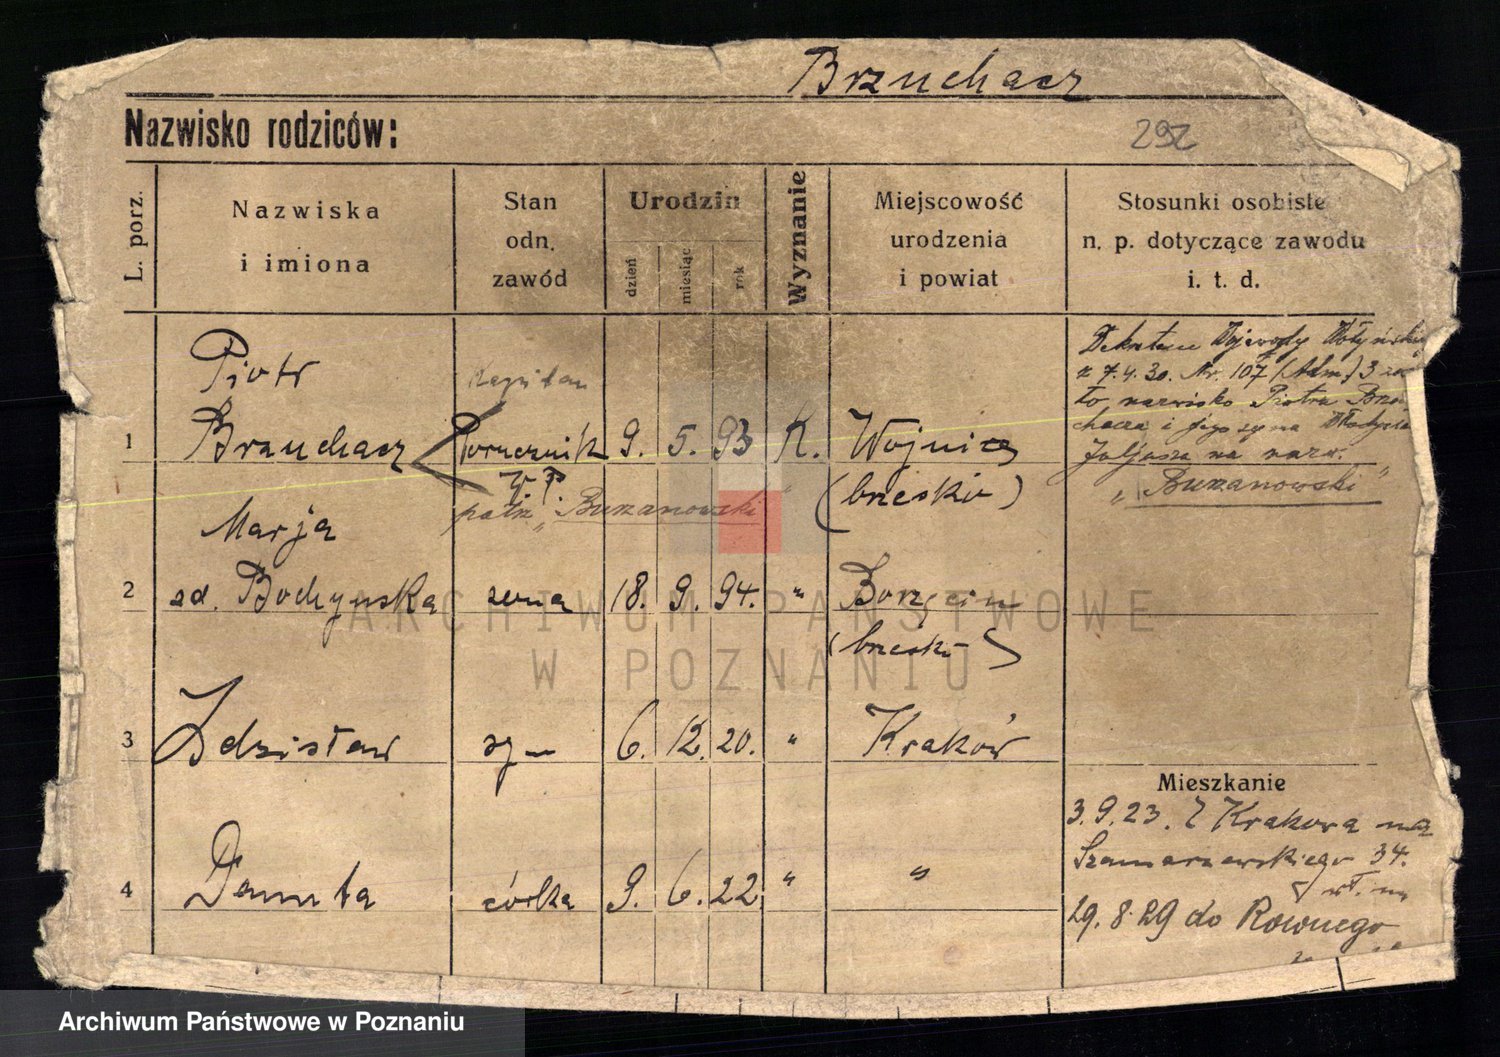 Brzuchacz
Nazwisko rodziców:
292
L. porz.
Nazwiska
i imiona
Stan
odn.
zawód
Urodzin
dzień
miesiąc
rok
Wyznanie
Miejscowość
urodzenia
i powiat
Stosunki osobiste
n. p. dotyczące zawodu
i. t. d.
Piotr
Kapitan
1 Brzuchacz Porucznik 9. 5. 93 K. Wojnicz
W. P.
(brzesko)
patrz „Buzanowski”
Dekretem Wojewody Wołyńskie
z 7.4.30. Nr. 107 (Adm.) 3
to nazwisko Piotra Brzu
chacza i jego syna
na nazw.
„Buzanowski”
Marja
2 zd. Bochyńska żona 18. 9. 94. " Borzęcin
(brzesko)
3 Zdzisław syn 6. 12. 20. " Kraków
4 Danuta córka 9. 6. 22 " "
Mieszkanie
3.9.23. Z Krakowa na
Szamarzewskiego 34.
29.8.29 do Równego
ARCHIWUM PAŃSTWOWE
W POZNANIU
Archiwum Państwowe w Poznaniu